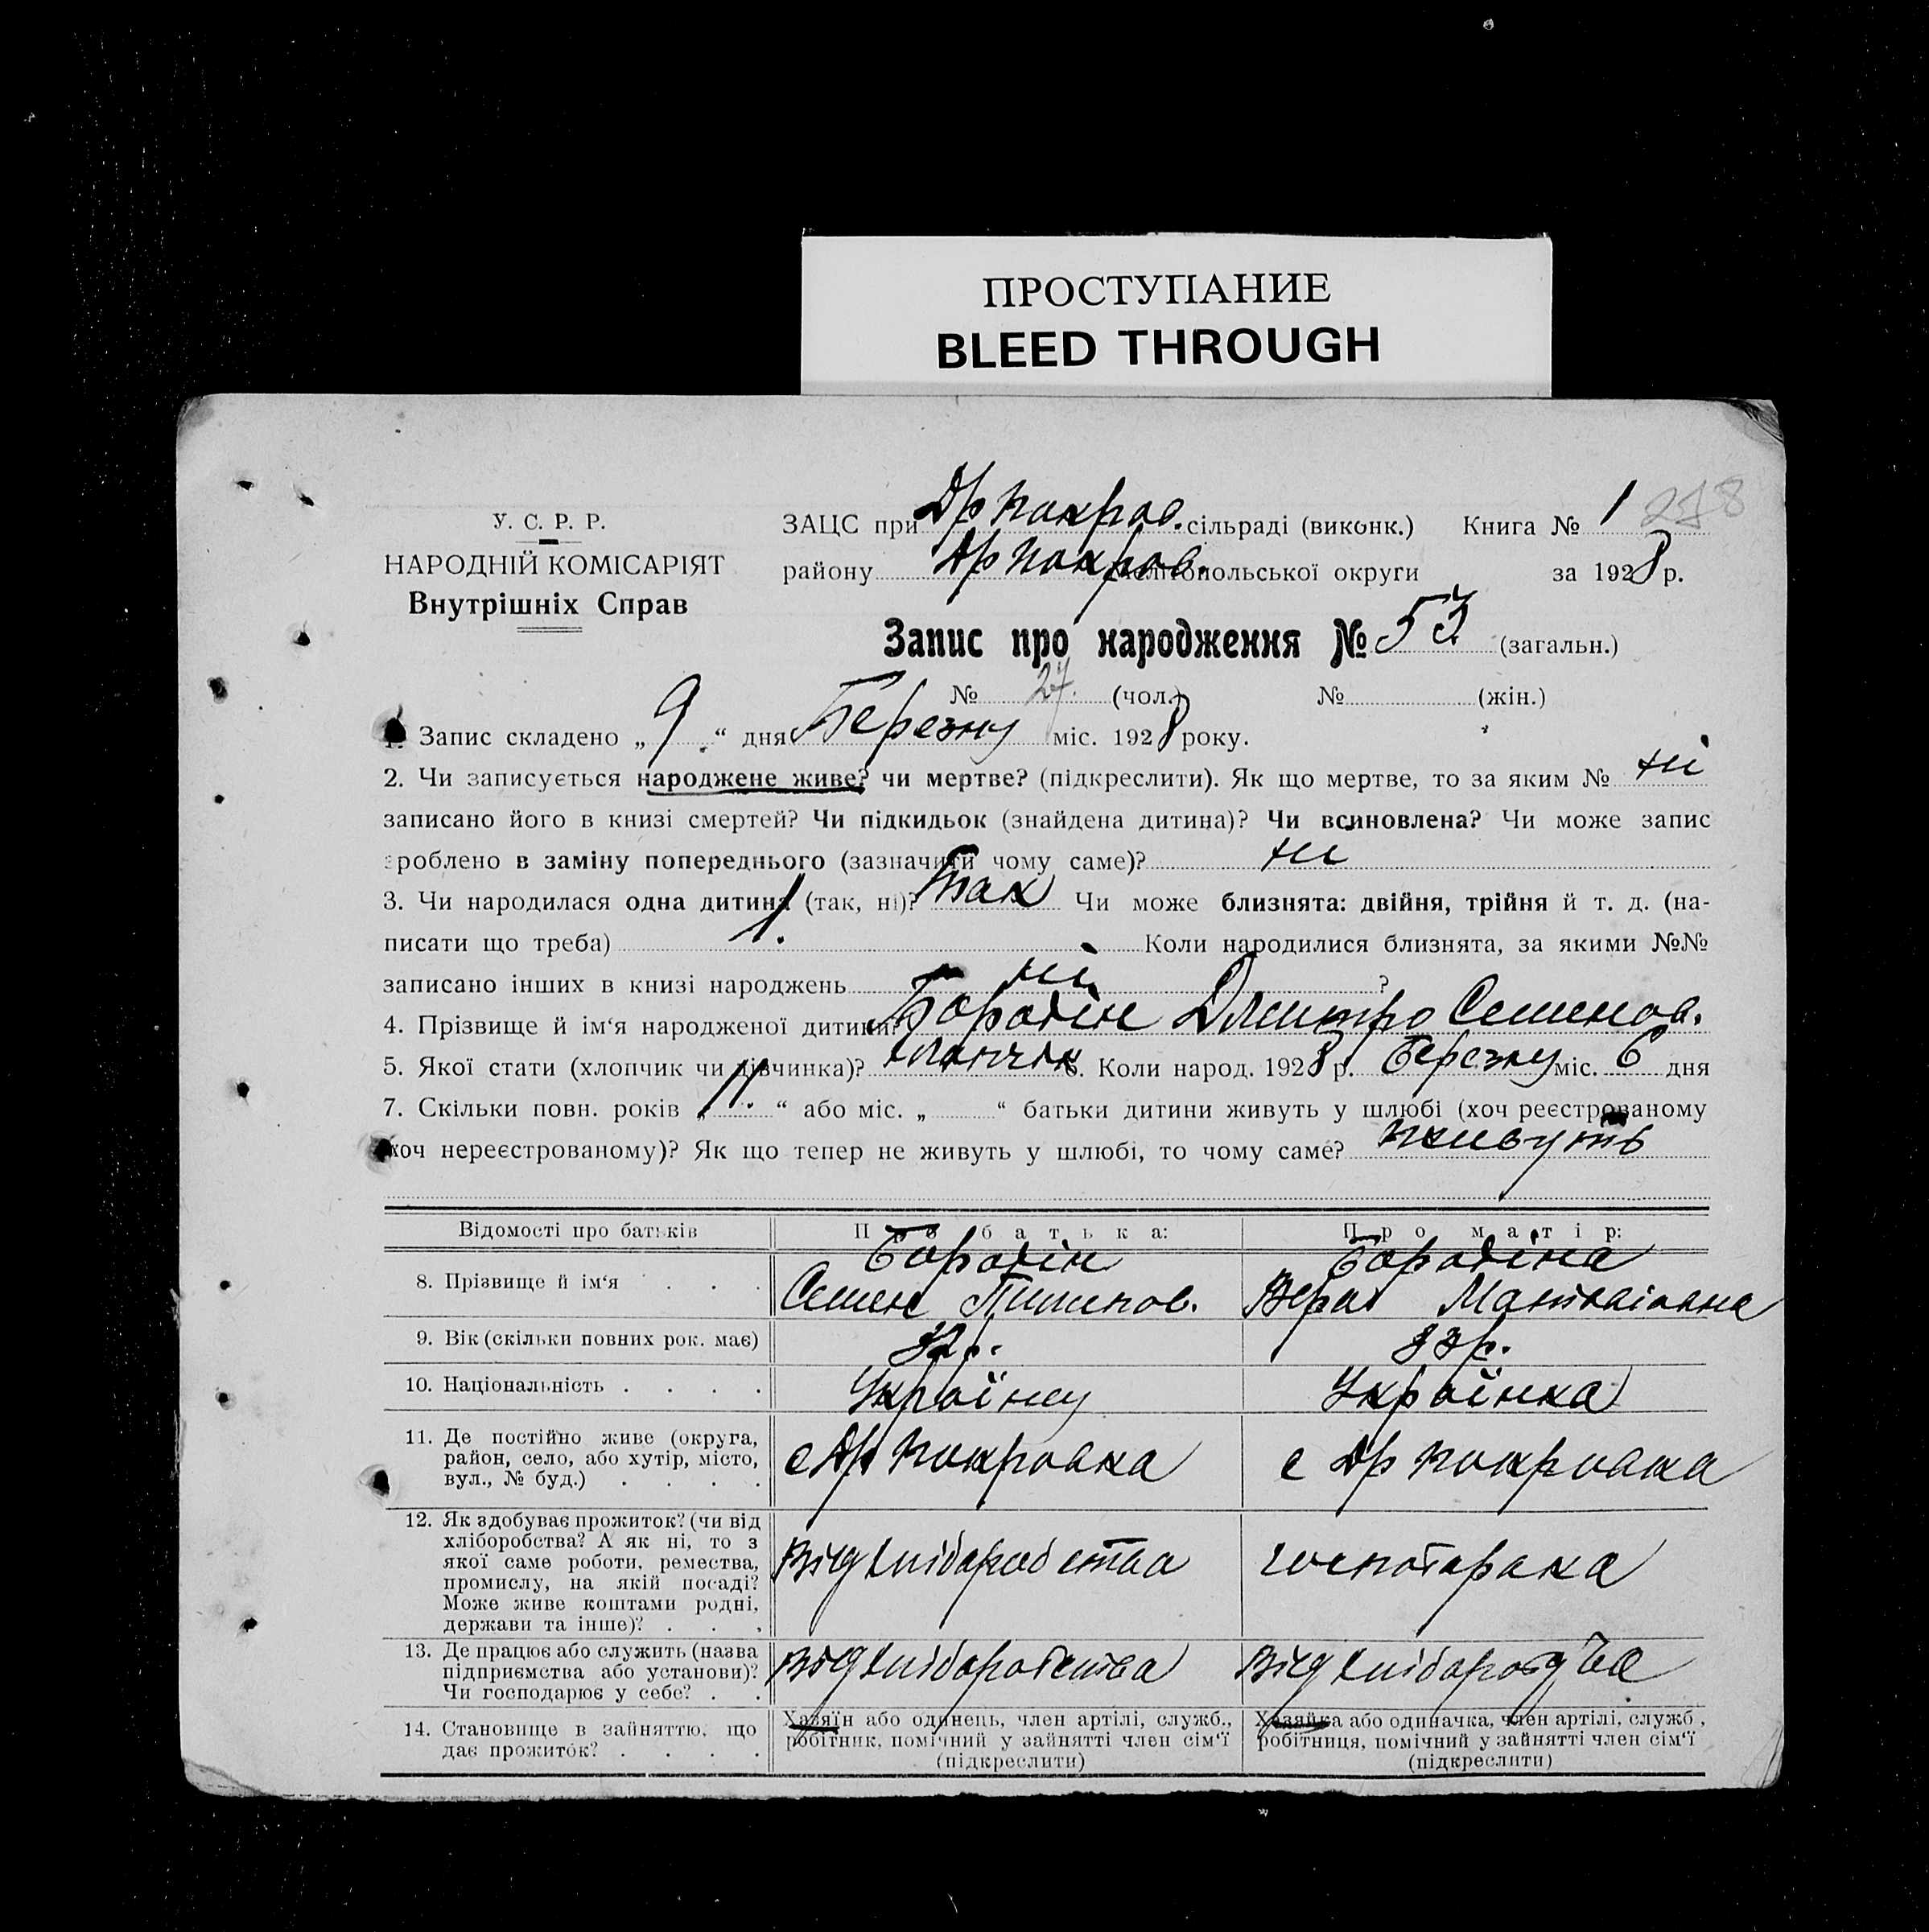 ПРОСТУПАНИЕ
BLEED THROUGH
У. С. Р. Р.
НАРОДНІЙ КОМІСАРІЯТ
Внутрішніх Справ
ЗАЦС при Др Покров. сільраді (виконк.) Книга № 1
району Др Покров. Мелітопольської округи за 1928 р.
Запис про народження № 53 (загальн.)
№ 27. (чол.) № (жін.)
1. Запис складено „9“ дня Березню міс. 1928 року.
2. Чи записується народжене живе? чи мертве? (підкреслити). Як що мертве, то за яким № ні
записано його в книзі смертей? Чи підкидьок (знайдена дитина)? Чи всиновлена? Чи може запис
зроблено в заміну попереднього (зазначити чому саме)? ні
3. Чи народилася одна дитина (так, ні)? так Чи може близнята: двійня, трійня й т. д. (на-
писати що треба) 1. Коли народилися близнята, за якими №№
записано інших в книзі народжень ні ?
4. Прізвище й ім‘я народженої дитини? Бородін Дмитро Семенов.
5. Якої стати (хлопчик чи дівчинка)? хлопчик 6. Коли народ. 1928 р. Березню міс. 6 дня
7. Скільки повн. років „11.“ або міс. „ “ батьки дитини живуть у шлюбі (хоч реєстрованому
хоч нереєстрованому)? Як що тепер не живуть у шлюбі, то чому саме? живуть
Відомості про батьків Про батька: Про матір:
8. Прізвище й ім‘я Бородін Семен Бородіна Вера
9. Вік (скільки повних рок. має) 32 р. 33 р.
10. Національність . . . . Українец Українка
11. Де постійно живе (округа,
район, село, або хутір, місто,
вул., № буд.) . . . .
с Др Покровка с Др Покровка
12. Як здобуває прожиток? (чи від
хліборобства? А як ні, то з
якої саме роботи, ремества,
промислу, на якій посаді?
Може живе коштами родні,
держави та інше)? . . .
Від хліборобства
13. Де працює або служить (назва
підприємства або установи)?
Чи господарює у себе? . .
Від хліборобства Від
14. Становище в зайняттю, що
дає прожиток? . . . .
Хазяїн або одинець, член артілі, служб.,
робітник, помічний у зайнятті член сім‘ї
(підкреслити)
Хазяйка або одиначка, член артілі, служб.,
робітниця, помічний у зайнятті член сім‘ї
(підкреслити)